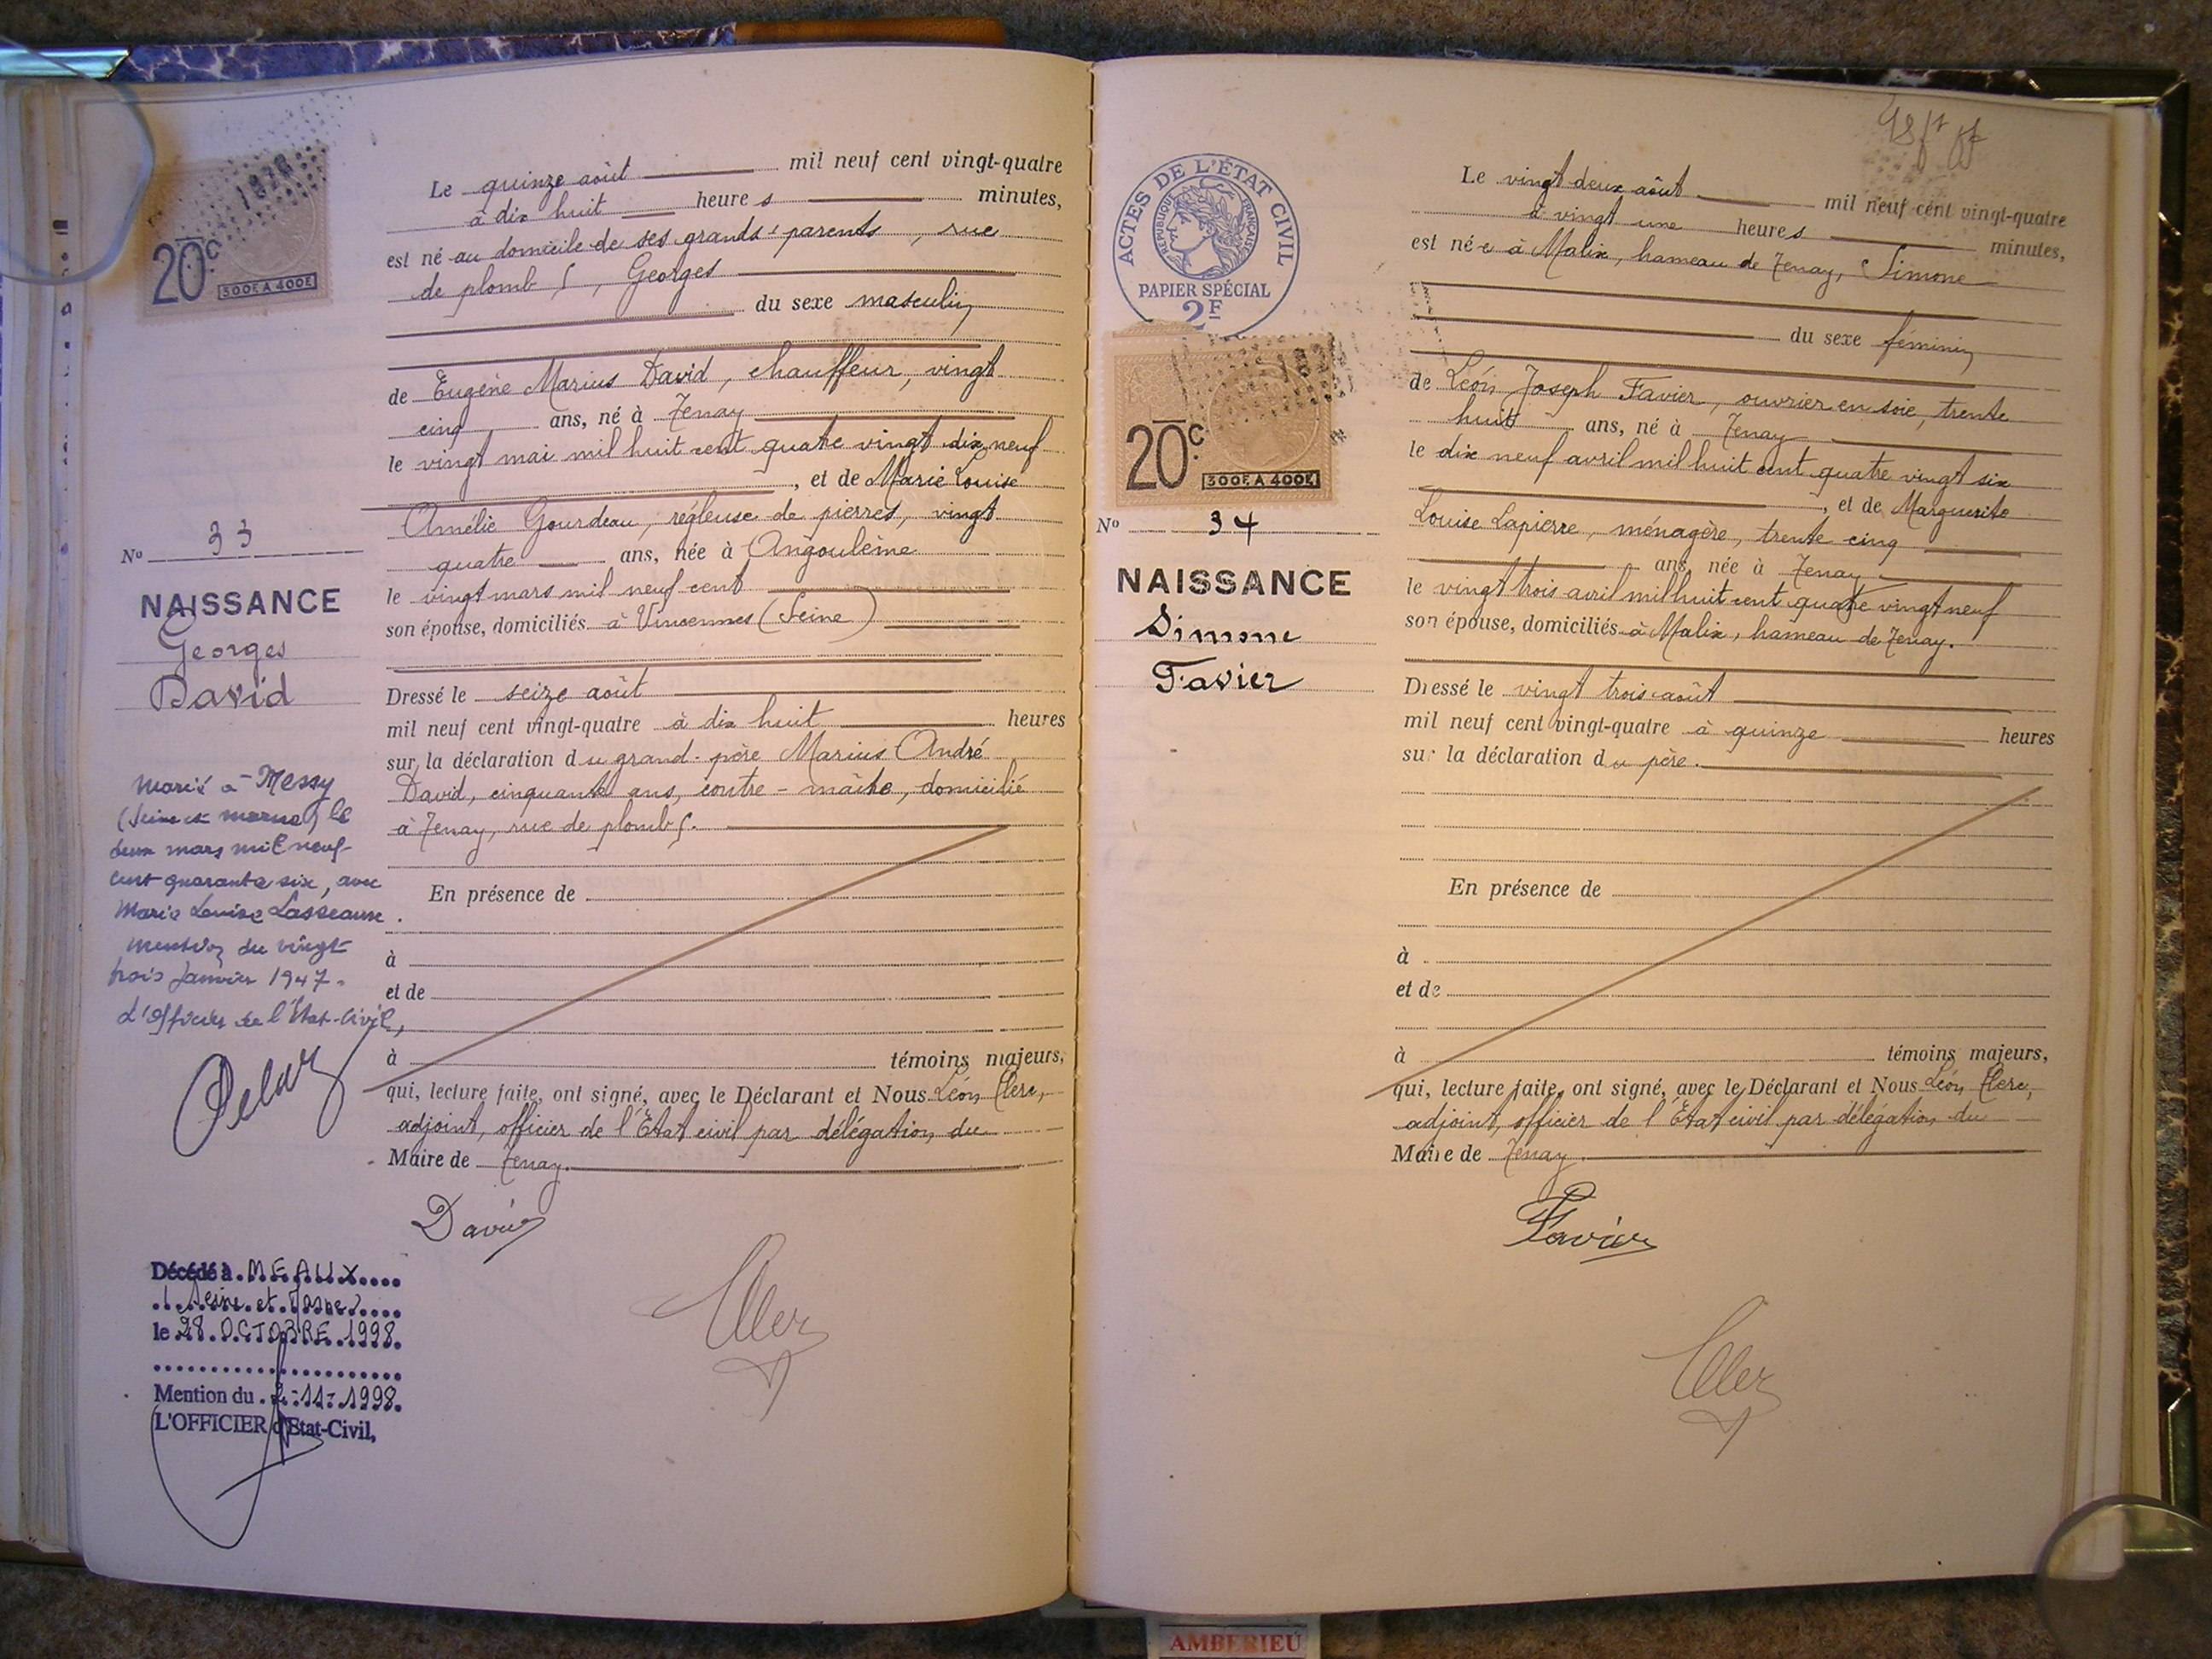 20c
300F. A 400F.
Le quinze août mil neuf cent vingt-quatre
à dix huit heures minutes,
est né au domicile de ses grands-parents, rue
de plomb, Georges
du sexe masculin
de Eugène Marius David, chauffeur, vingt
cinq ans, né à Tenay
le vingt mai mil huit cent quatre vingt dix neuf
, et de Marie Louise
Amélie Gourdeau, régleuse de pierres, vingt
quatre ans, née à Angoulême
le vingt mars mil neuf cent
son épouse, domiciliés à Vincennes (Seine)
Dressé le seize août
mil neuf cent vingt-quatre à dix huit heures
sur la déclaration du grand-père Marius André
David, cinquante ans, contre-maître, domicilié
à Tenay, rue de plomb.
En présence de
à
et de
à témoins majeurs,
qui, lecture faite, ont signé, avec le Déclarant et Nous Léon Clerc,
adjoint, officier de l'État civil par délégation du
Maire de Tenay.
David
Clerc
No 33
NAISSANCE
Georges
David
Marié à Messy
(Seine et Marne) le
deux mars mil neuf
cent quarante six, avec
Marie Louise
Mention du vingt
trois Janvier 1947.
L'Officier de l'Etat-Civil,
Décédé à MEAUX
(Seine et Marne)
le 28 OCTOBRE 1998
Mention du 2-11-1998
L'OFFICIER d'Etat-Civil,
ACTES DE L'ÉTAT CIVIL
RÉPUBLIQUE FRANÇAISE
PAPIER SPÉCIAL
2F
20c
300F. A 400F.
No 34
NAISSANCE
Simone
Favier
Le vingt deux août mil neuf cent vingt-quatre
à vingt une heures minutes,
est née à Malix, hameau de Tenay, Simone
du sexe féminin
de Léon Joseph Favier, ouvrier en soie, trente
huit ans, né à Tenay
le dix neuf avril mil huit cent quatre vingt six
, et de Marguerite
Louise Lapierre, ménagère, trente cinq
ans, née à Tenay
le vingt trois avril mil huit cent quatre vingt neuf
son épouse, domiciliés à Malix, hameau de Tenay.
Dressé le vingt trois août
mil neuf cent vingt-quatre à quinze heures
sur la déclaration du père.
En présence de
à
et de
à témoins majeurs,
qui, lecture faite, ont signé, avec le Déclarant et Nous Léon Clerc,
adjoint, officier de l'État civil par délégation du
Maire de Tenay.
Favier
Clerc
AMBERIEU